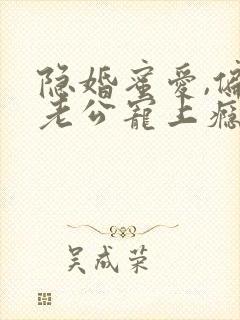 隐婚蜜爱,偏
老公宠上瘾
吴成荣